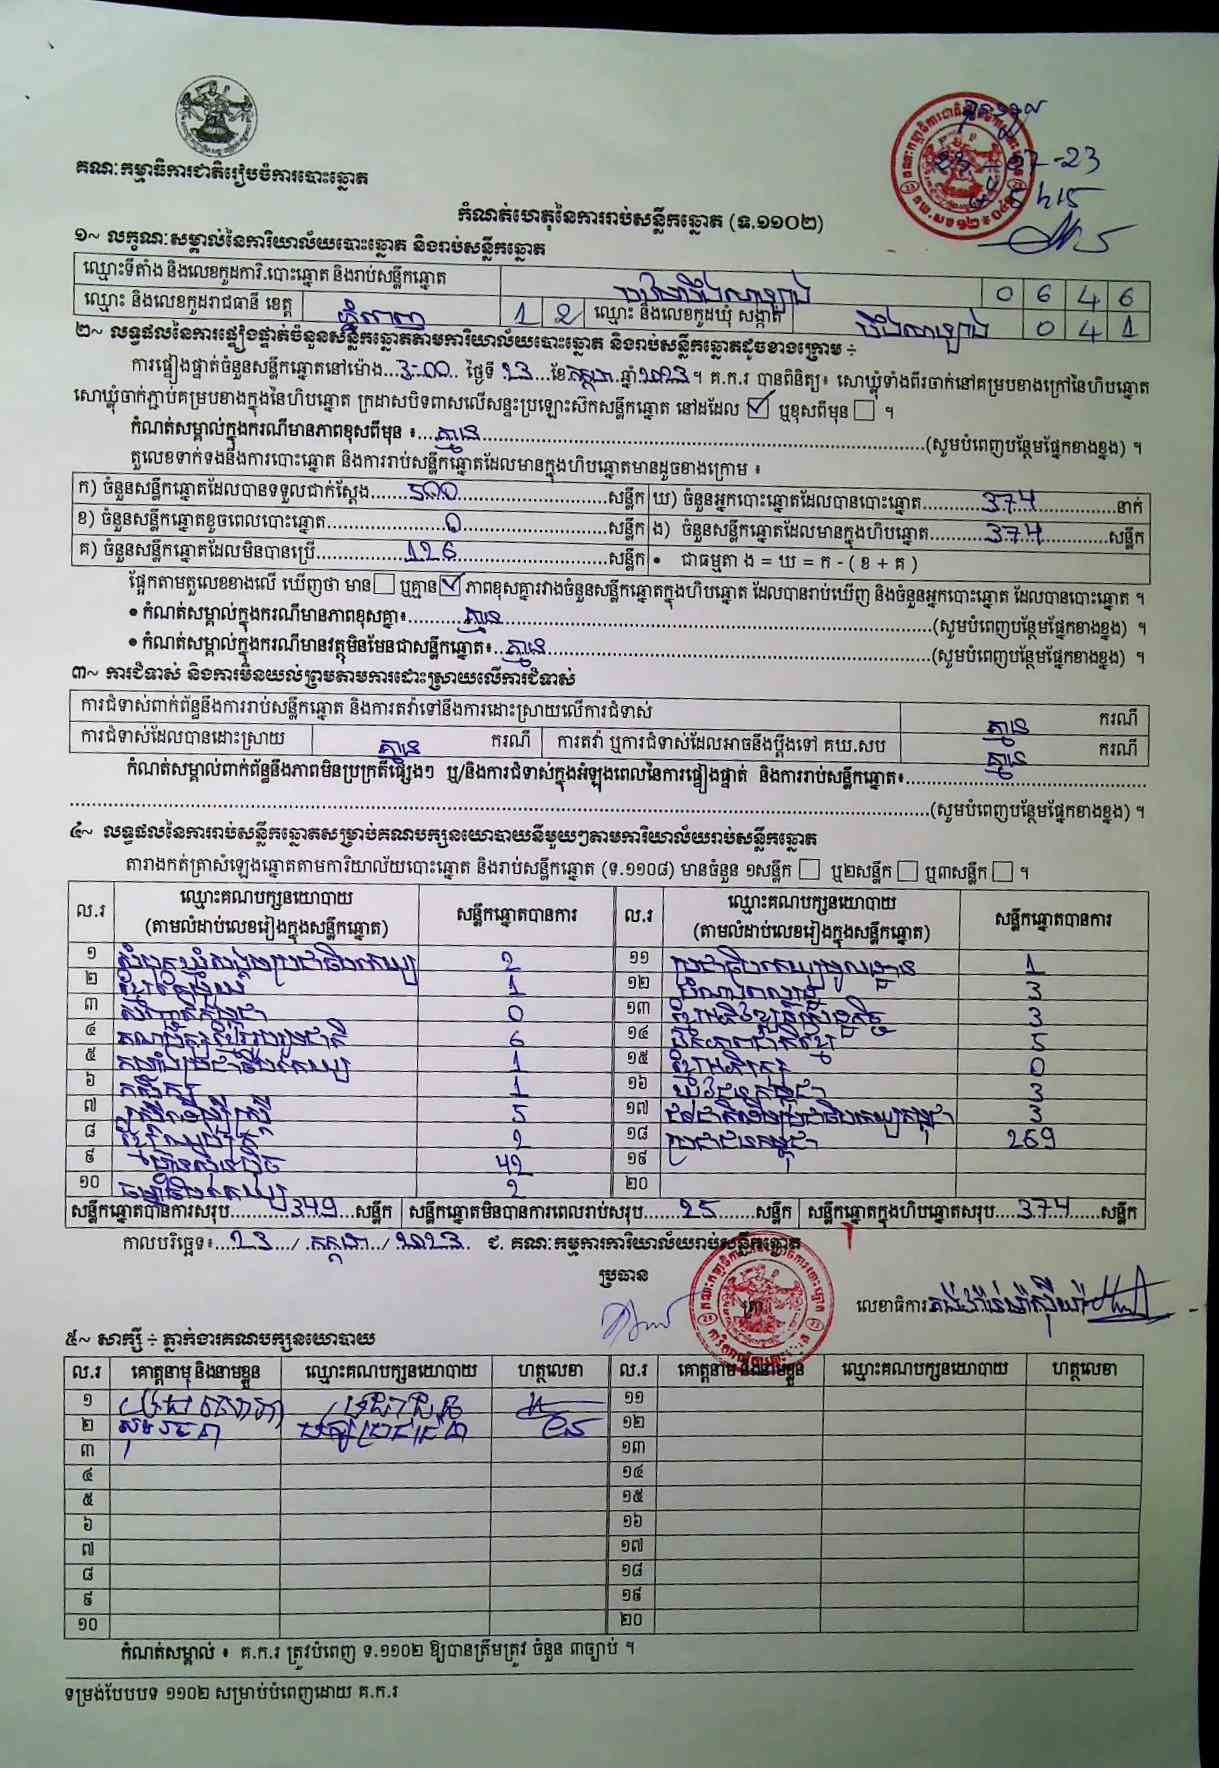 គណៈកម្មាធិការជាតិរៀបចំការបោះឆ្នោត
23-07-23
8h15
កំណត់ហេតុនៃការរាប់សន្លឹកឆ្នោត (ទ.១១០២)
១~ លក្ខណៈសម្គាល់នៃការិយាល័យបោះឆ្នោត និងរាប់សន្លឹកឆ្នោត
ឈ្មោះទីតាំង និងលេខកូដការិ.បោះឆ្នោត និងរាប់សន្លឹកឆ្នោត 0 6 4 6
ឈ្មោះ និងលេខកូដរាជធានី ខេត្ត ភ្នំពេញ 1 2 ឈ្មោះ និងលេខកូដឃុំ សង្កាត់ បឹងសាឡាង 0 4 1
២~ លទ្ធផលនៃការផ្ទៀងផ្ទាត់ចំនួនសន្លឹកឆ្នោតតាមការិយាល័យបោះឆ្នោត និងរាប់សន្លឹកឆ្នោតដូចខាងក្រោម ÷
ការផ្ទៀងផ្ទាត់ចំនួនសន្លឹកឆ្នោតនៅម៉ោង...3-00... ថ្ងៃទី 23 ...ខែកក្កដា ឆ្នាំ 2023 ។ គ.ក.រ បានពិនិត្យ៖ សោឃ្លុំទាំងពីរចាក់នៅគម្របខាងក្រៅនៃហិបឆ្នោត
សោឃ្លុំចាក់ភ្ជាប់គម្របខាងក្នុងនៃហិបឆ្នោត ក្រដាសបិទពាសលើសន្ទះប្រឡោះស៊កសន្លឹកឆ្នោត នៅដដែល ☑ ឬខុសពីមុន ☐ ។
កំណត់សម្គាល់ក្នុងករណីមានភាពខុសពីមុន ៖...គ្មាន...(សូមបំពេញបន្ថែមផ្នែកខាងខ្នង) ។
តួលេខទាក់ទងនឹងការបោះឆ្នោត និងការរាប់សន្លឹកឆ្នោតដែលមានក្នុងហិបឆ្នោតមានដូចខាងក្រោម ៖
ក) ចំនួនសន្លឹកឆ្នោតដែលបានទទួលជាក់ស្តែង...500...សន្លឹក ឃ) ចំនួនអ្នកបោះឆ្នោតដែលបានបោះឆ្នោត...374...នាក់
ខ) ចំនួនសន្លឹកឆ្នោតខូចពេលបោះឆ្នោត...0...សន្លឹក ង) ចំនួនសន្លឹកឆ្នោតដែលមានក្នុងហិបឆ្នោត...374...សន្លឹក
គ) ចំនួនសន្លឹកឆ្នោតដែលមិនបានប្រើ...126...សន្លឹក • ជាធម្មតា ង = ឃ = ក - ( ខ + គ )
ផ្អែកតាមតួលេខខាងលើ ឃើញថា មាន ☐ ឬគ្មាន ☑ ភាពខុសគ្នារវាងចំនួនសន្លឹកឆ្នោតក្នុងហិបឆ្នោត ដែលបានរាប់ឃើញ និងចំនួនអ្នកបោះឆ្នោត ដែលបានបោះឆ្នោត ។
• កំណត់សម្គាល់ក្នុងករណីមានភាពខុសគ្នា៖...គ្មាន...(សូមបំពេញបន្ថែមផ្នែកខាងខ្នង) ។
• កំណត់សម្គាល់ក្នុងករណីមានវត្ថុមិនមែនជាសន្លឹកឆ្នោត៖...គ្មាន...(សូមបំពេញបន្ថែមផ្នែកខាងខ្នង) ។
៣~ ការជំទាស់ និងការមិនយល់ព្រមតាមការដោះស្រាយលើការជំទាស់
ការជំទាស់ពាក់ព័ន្ធនឹងការរាប់សន្លឹកឆ្នោត និងការតវ៉ាទៅនឹងការដោះស្រាយលើការជំទាស់ គ្មាន ករណី
ការជំទាស់ដែលបានដោះស្រាយ គ្មាន ករណី ការតវ៉ា ឬការជំទាស់ដែលអាចនឹងប្តឹងទៅ គឃ.សប គ្មាន ករណី
កំណត់សម្គាល់ពាក់ព័ន្ធនឹងភាពមិនប្រក្រតីផ្សេងៗ ឬ/និងការជំទាស់ក្នុងអំឡុងពេលនៃការផ្ទៀងផ្ទាត់ និងការរាប់សន្លឹកឆ្នោត៖...
...(សូមបំពេញបន្ថែមផ្នែកខាងខ្នង) ។
៤~ លទ្ធផលនៃការរាប់សន្លឹកឆ្នោតសម្រាប់គណបក្សនយោបាយនីមួយៗតាមការិយាល័យរាប់សន្លឹកឆ្នោត
តារាងកត់ត្រាសំឡេងឆ្នោតតាមការិយាល័យបោះឆ្នោត និងរាប់សន្លឹកឆ្នោត (ទ.១១០៨) មានចំនួន ១សន្លឹក ☐ ឬ២សន្លឹក ☐ ឬ៣សន្លឹក ☐ ។
ល.រ ឈ្មោះគណបក្សនយោបាយ (តាមលំដាប់លេខរៀងក្នុងសន្លឹកឆ្នោត) សន្លឹកឆ្នោតបានការ ល.រ ឈ្មោះគណបក្សនយោបាយ (តាមលំដាប់លេខរៀងក្នុងសន្លឹកឆ្នោត) សន្លឹកឆ្នោតបានការ
១ សំបុកឃ្មុំសង្គមប្រជាធិបតេយ្យ 2 ១១ ប្រជាធិបតេយ្យមូលដ្ឋាន 1
២ 1 ១២ 3
៣ 0 ១៣ ខ្មែរអភិវឌ្ឍន៍សេដ្ឋកិច្ច 3
៤ 6 ១៤ ឯកភាពជាតិខ្មែរ 5
៥ 1 ១៥ 0
៦ កសិករ 1 ១៦ យុវជនកម្ពុជា 3
៧ 5 ១៧ 3
៨ 2 ១៨ ប្រជាជនកម្ពុជា 269
៩ ហ្វ៊ុនស៊ិនប៉ិច 42 ១៩
១០ ធម្មាធិបតេយ្យ 2 ២០
សន្លឹកឆ្នោតបានការសរុប...349...សន្លឹក សន្លឹកឆ្នោតមិនបានការពេលរាប់សរុប...25...សន្លឹក សន្លឹកឆ្នោតក្នុងហិបឆ្នោតសរុប...374...សន្លឹក
កាលបរិច្ឆេទ៖...23.../.កក្កដា.../ 2023. ជ. គណៈកម្មការការិយាល័យរាប់សន្លឹកឆ្នោត
ប្រធាន
លេខាធិការ
៥~ សាក្សី ÷ ភ្នាក់ងារគណបក្សនយោបាយ
ល.រ គោត្តនាម និងនាមខ្លួន ឈ្មោះគណបក្សនយោបាយ ហត្ថលេខា ល.រ គោត្តនាម និងនាមខ្លួន ឈ្មោះគណបក្សនយោបាយ ហត្ថលេខា
១ ១១
២ ១២
៣ ១៣
៤ ១៤
៥ ១៥
៦ ១៦
៧ ១៧
៨ ១៨
៩ ១៩
១០ ២០
កំណត់សម្គាល់ ៖ គ.ក.រ ត្រូវបំពេញ ទ.១១០២ ឱ្យបានត្រឹមត្រូវ ចំនួន ៣ច្បាប់ ។
ទម្រង់បែបបទ ១១០២ សម្រាប់បំពេញដោយ គ.ក.រ